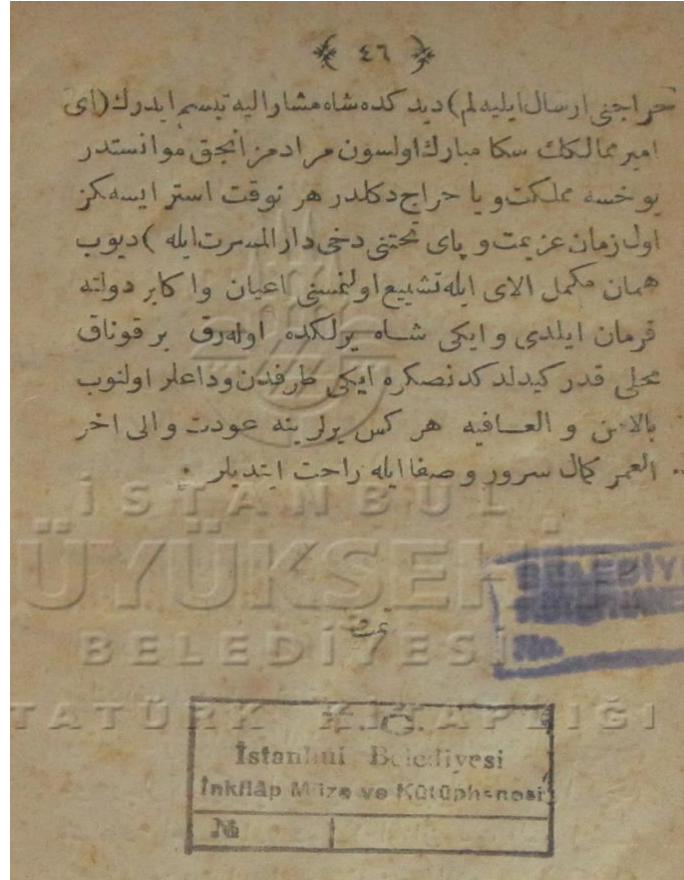 ﴿ ٤٦ ﴾
خراجنی ارسال ایلیه لم) دیدکده شاه مشار الیه تبسم ایدرك (ای
امیر ممالكك سكا مبارك اولسون مرادمز انجق موانستدر
یوخسه مملکت و یا خراج دکلدر هر نوقت استر ایسه کز
اول زمان عزیمت و پای تختنی دخی دار المسرت ایله) دیوب
همان مكمل الای ایله تشییع اولنمسنی اعیان وا کابر دولته
فرمان ایلدی و ایکی شاه برلکده اوله رق بر قوناق
محلی قدر کیدلد کدنصکره ایکی طرفدن وداعلر اولنوب
بالامن و العافیه هر کس یرلرینه عودت و الی اخر
العمر کمال سرور و صفا ایله راحت ایتدیلر
تمت
İSTANBUL
ÜYÜKŞEHİ
BELEDİYESİ
TATÜRK KİTAPLIĞI
BELEDİY
No.
T. C.
İstanbul Belediyesi
İnkılâp Müze ve Kütüphanesi
№